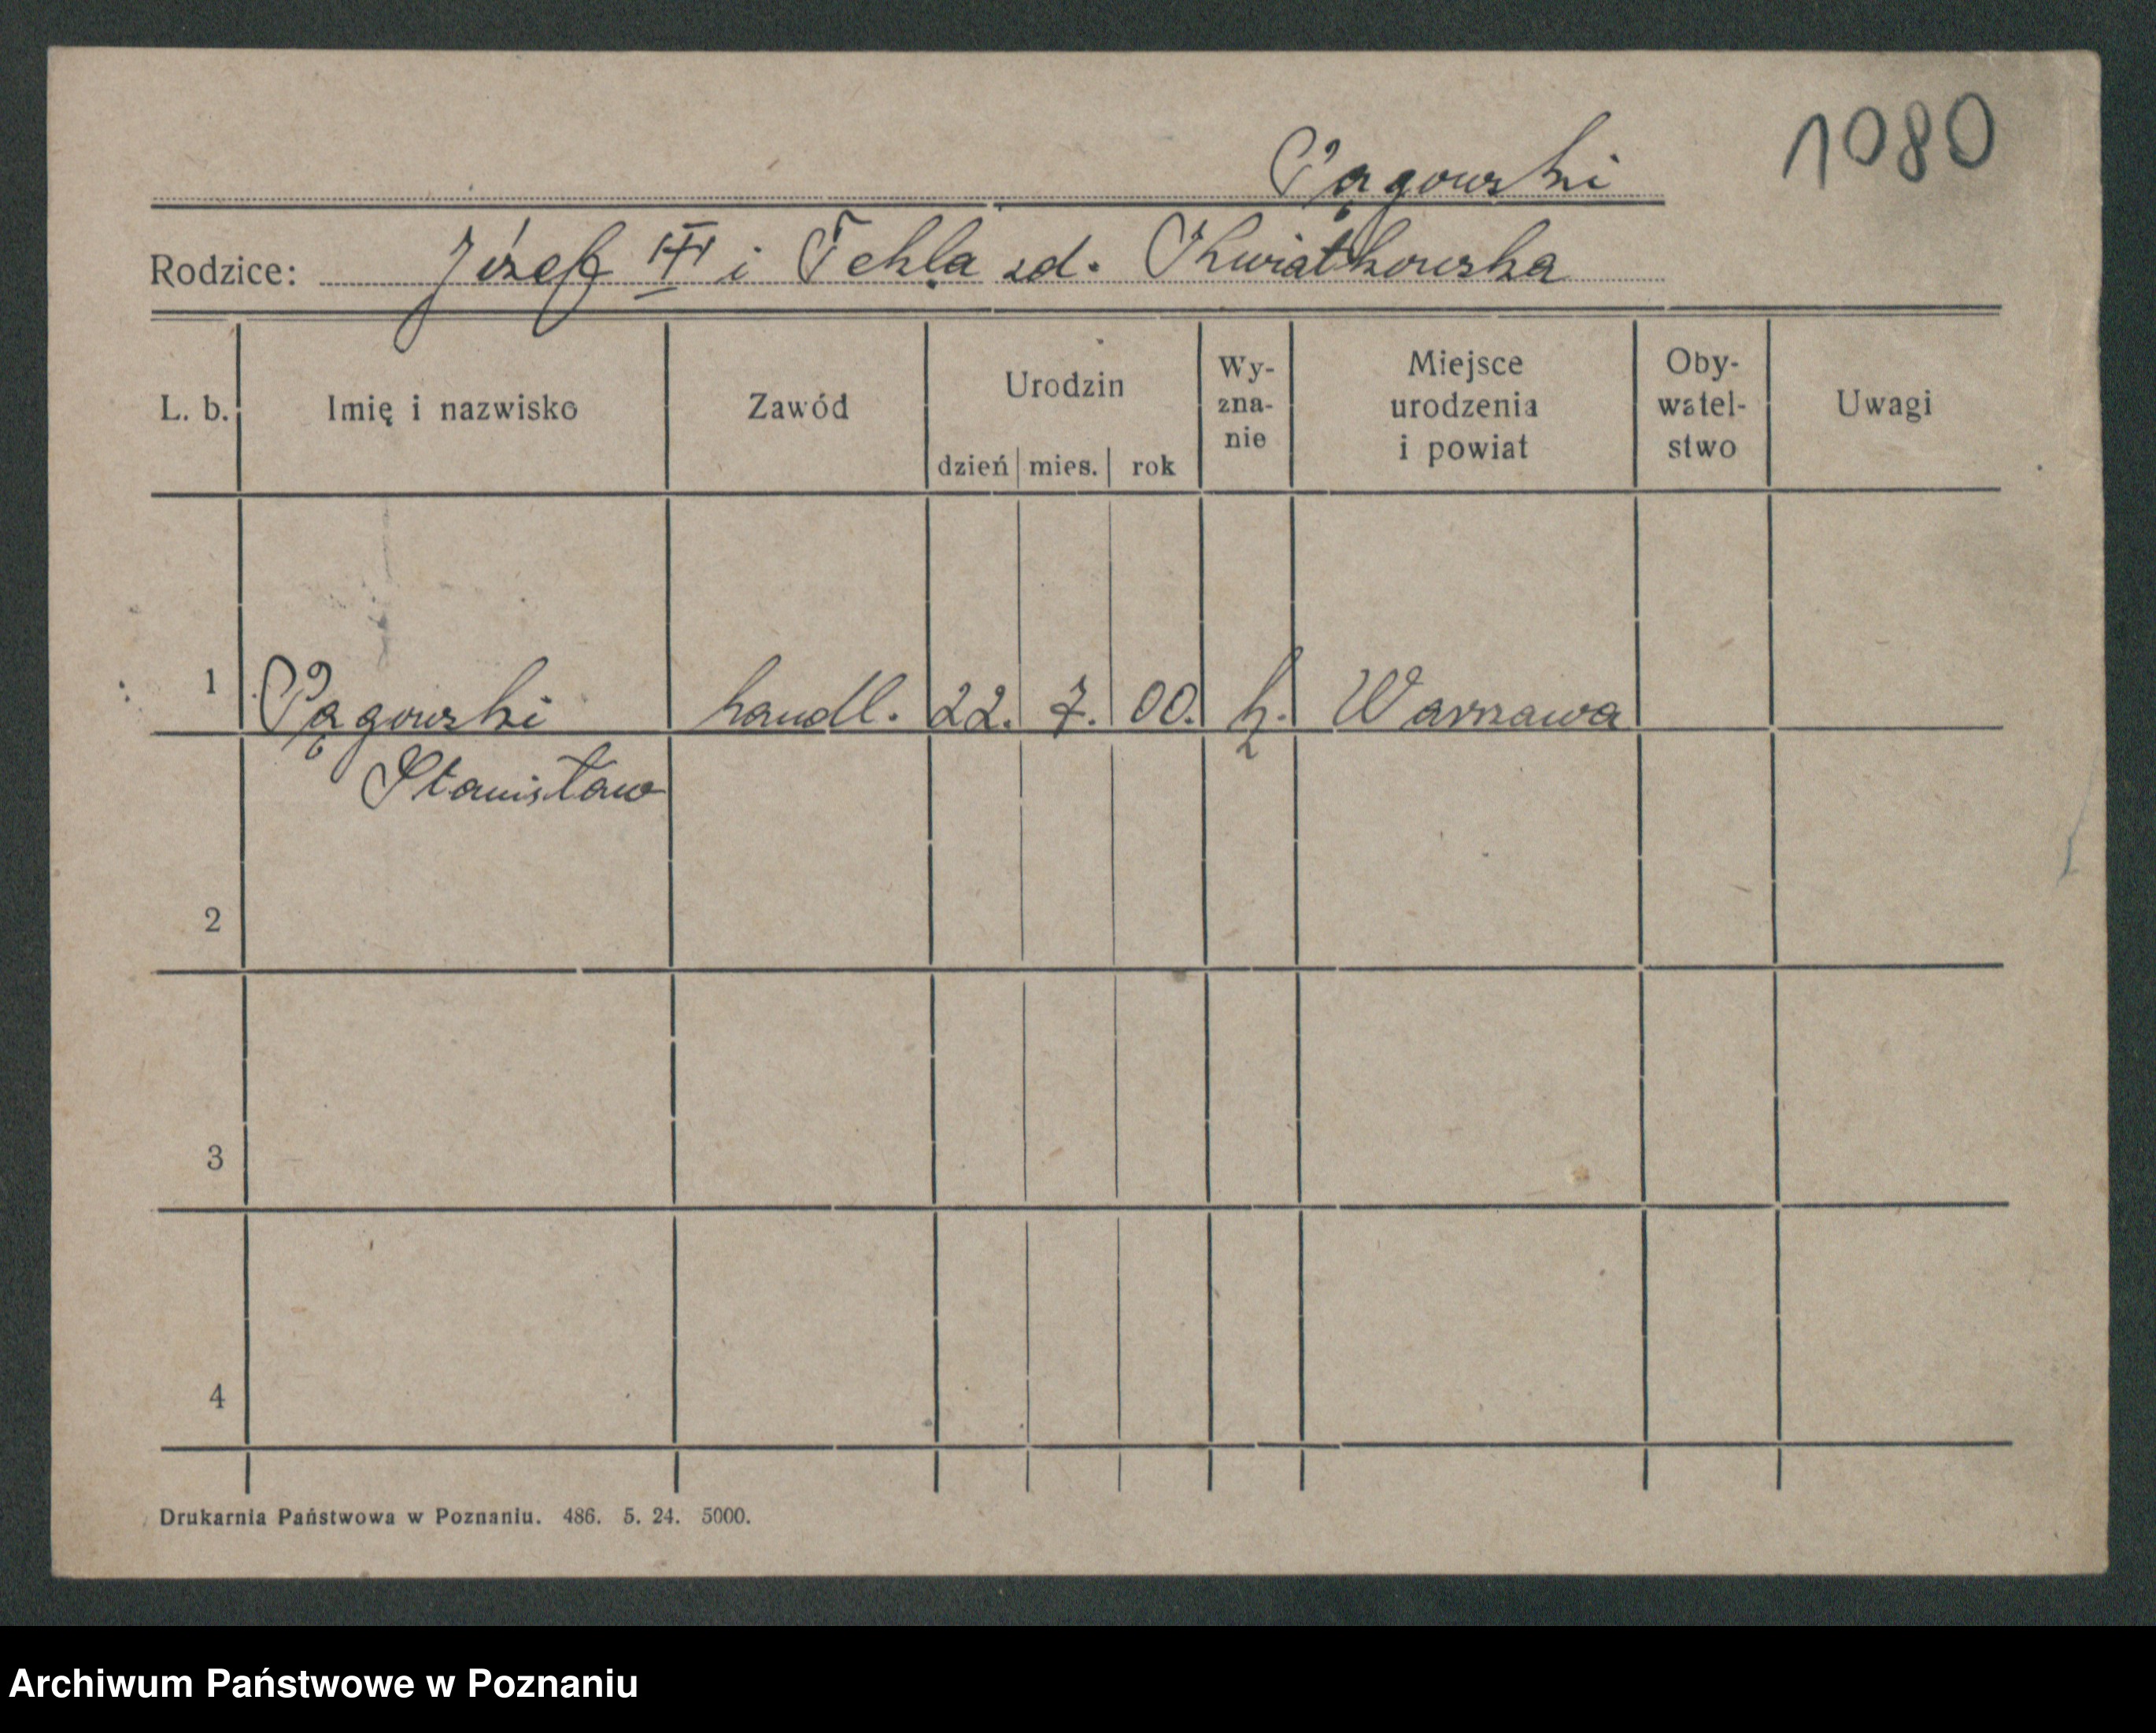 1080
Pągowski
Rodzice: Józef III i Tekla zd. Kwiatkowska
L. b. Imię i nazwisko Zawód Urodzin dzień mies. rok Wy-zna-nie Miejsce urodzenia i powiat Oby-watel-stwo Uwagi
1 Pągowski handl. 22. 7. 00. k. Warszawa
Stanisław
2
3
4
Drukarnia Państwowa w Poznaniu. 486. 5. 24. 5000.
Archiwum Państwowe w Poznaniu